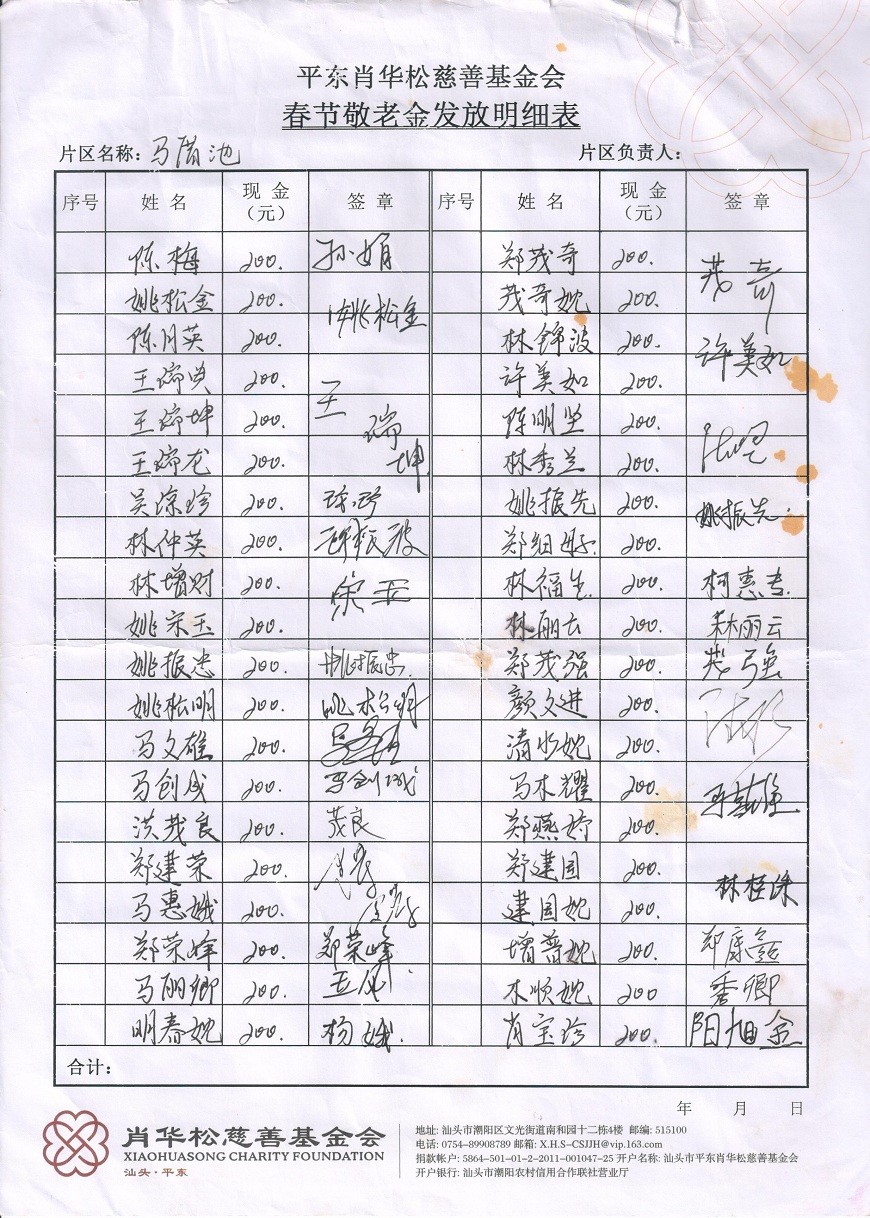 平东肖华松慈善基金会
春节敬老金发放明细表
片区名称: 马滘池 片区负责人:
序号 姓名 现金（元） 签章 序号 姓名 现金（元） 签章
陈梅 200. 孙娟 郑茂奇 200. 茂奇
姚松金 200. 姚松金 茂奇婉 200.
陈月英 200. 林锦波 200. 许美如
王瑞典 200. 王瑞坤 许美如 200.
王瑞坤 200. 陈明坚 200.
王瑞龙 200. 林秀兰 200.
吴琼珍 200. 姚振先 200. 姚振先.
林仲英 200. 郑细 200.
林增财 200. 宗玉 林福生 200. 柯惠贵.
姚宗玉 200. 林丽云 200. 林丽云
姚振忠 200. 姚振忠. 郑茂强 200. 茂强
姚松明 200. 姚松明 颜文进 200.
马文雄 200. 清 婉 200.
马创成 200. 马创城 马木耀 200.
洪茂良 200. 茂良 郑燕 200.
郑建荣 200. 郑建国 200. 林桂珠
马惠娥 200. 建国婉 200.
郑荣峰 200. 郑荣峰 增普婉 200. 郑康
马丽卿 200. 木顺婉 200 秀卿
明春婉 200. 杨娥. 肖宝珍 200. 阳旭金
合计:
年 月 日
肖华松慈善基金会
XIAOHUASONG CHARITY FOUNDATION
汕头·平东
地址: 汕头市潮阳区文光街道南和园十二栋4楼 邮编: 515100
电话: 0754-89908789 邮箱: X.H.S-CSJJH@vip.163.com
捐款帐户: 5864-501-01-2-2011-001047-25 开户名称: 汕头市平东肖华松慈善基金会
开户银行: 汕头市潮阳农村信用合作联社营业厅